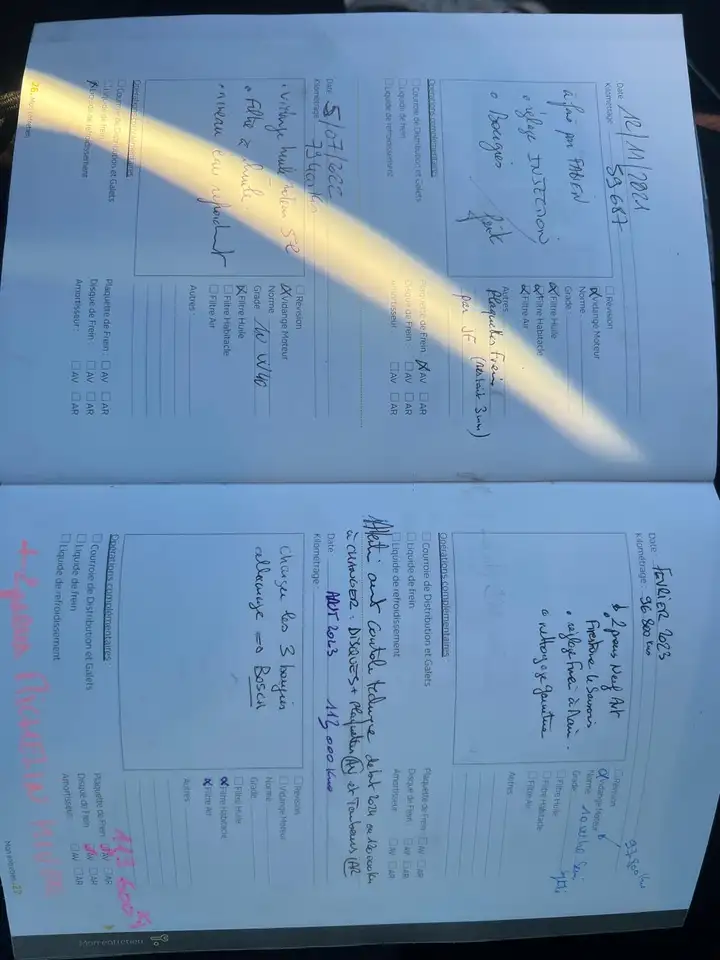 Date : 12/11/2021
Kilométrage : 59687
à faire par FABIEN
• réglage INJECTION
• Bougies fait
☐ Révision
☒ Vidange Moteur
Norme
Grade
☒ Filtre Huile
☒ Filtre Habitacle
☒ Filtre Air
Autres :
Plaquettes Freins
par JF (restait 3mm)
Opérations complémentaires
☐ Courroie de Distribution et Galets
☐ Liquide de frein
☐ Liquide de refroidissement
Plaquette de Frein : ☒ AV ☐ AR
Disque de Frein : ☐ AV ☐ AR
Amortisseur : ☐ AV ☐ AR
Date : 5/07/2022
Kilométrage :
• Vidange huile
• Filtre à huile
• niveau eau refroidt
☐ Révision
☒ Vidange Moteur
Norme
Grade 10W40
☒ Filtre Huile
☐ Filtre Habitacle
☐ Filtre Air
Autres :
Opérations complémentaires
☐ Courroie de Distribution et Galets
☐ Liquide de frein
☒ Liquide de refroidissement
Plaquette de Frein : ☐ AV ☐ AR
Disque de Frein : ☐ AV ☐ AR
Amortisseur : ☐ AV ☐ AR
26. Mon entretien
Date : FEVRIER 2023
Kilométrage : 96 800 km
2 pneus Neuf AV
Firestone
• réglage Frein à Main.
• nettoyage
97800 km
☐ Révision
☒ Vidange Moteur
Norme
Grade
☐ Filtre Huile
☐ Filtre Habitacle
☐ Filtre Air
Autres :
Opérations complémentaires
☐ Courroie de Distribution et Galets
☐ Liquide de frein
☐ Liquide de refroidissement
Plaquette de Frein : ☐ AV ☐ AR
Disque de Frein : ☐ AV ☐ AR
Amortisseur : ☐ AV ☐ AR
avant Contôle technique début 2024 ou 120000 km
à CHANGER : DISQUES + plaquettes (AV) et Tambours (AR
Date : AOUT 2023
Kilométrage : 113 000 Kms
Changer les 3 bougies
allumage => BOSCH
☐ Révision
☐ Vidange Moteur
Norme
Grade
☐ Filtre Huile
☒ Filtre Habitacle
☒ Filtre Air
Autres :
Opérations complémentaires
☐ Courroie de Distribution et Galets
☐ Liquide de frein
☐ Liquide de refroidissement
113 600 K
Plaquette de Frein : ☒ AV ☐ AR
Disque de Frein : ☒ AV ☐ AR
Amortisseur : ☐ AV ☐ AR
+ 2 pneus MICHELIN
Mon entretien .27
Mon entretien